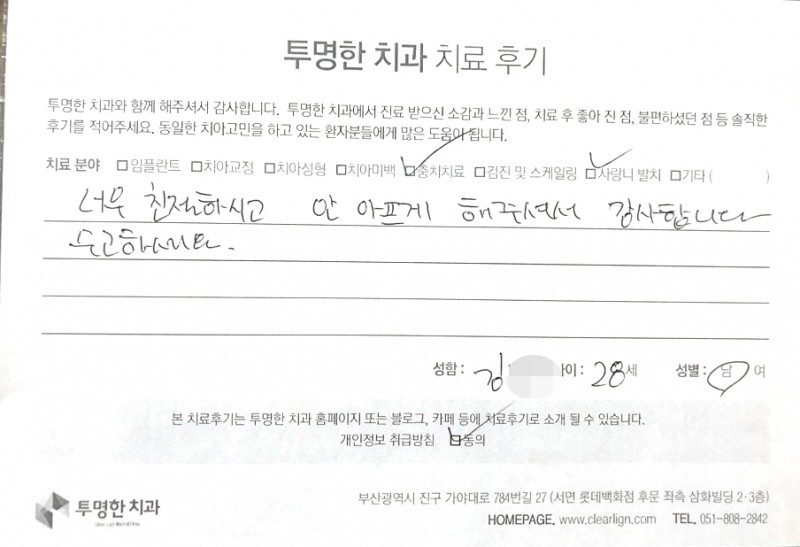 투명한 치과 치료 후기
투명한 치과와 함께 해주셔서 감사합니다. 투명한 치과에서 진료 받으신 소감과 느낀 점, 치료 후 좋아 진 점, 불편하셨던 점 등 솔직한
후기를 적어주세요. 동일한 치아고민을 하고 있는 환자분들에게 많은 도움이 됩니다.
치료 분야 □임플란트 □치아교정 □치아성형 □치아미백 ☑충치치료 □검진 및 스케일링 ☑사랑니 발치 □기타 ( )
너무 친절하시고 안 아프게 해주셔서 감사합니다
수고하십니다.
성함 : 김 이 : 28세 성별 : 남 여
본 치료후기는 투명한 치과 홈페이지 또는 블로그, 카페 등에 치료후기로 소개 될 수 있습니다.
개인정보 취급방침 ☑동의
투명한 치과
부산광역시 진구 가야대로 784번길 27 (서면 롯데백화점 후문 좌측 삼화빌딩 2·3층)
HOMEPAGE. www.clearlign.com TEL. 051-808-2842